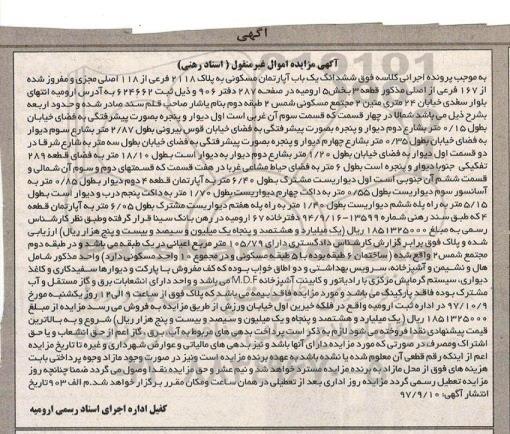 آگهی
آگهی مزایده اموال غیرمنقول ( اسناد رهنی)
به موجب پرونده اجرائی کلاسه فوق ششدانگ یک باب آپارتمان مسکونی به پلاک ۲۱۱۸ فرعی از ۱۱۸ اصلی مجزی و مفروز شده
از ۱۶۷ فرعی از اصلی مذکور قطعه ۳ بخش ۵ ارومیه در صفحه ۲۸۷ دفتر ۹۰۶ و ذیل ثبت ۶۲۴۶۶۲ به آدرس ارومیه انتهای
بلوار سعدی خیابان ۲۴ متری متین ۲ مجتمع مسکونی شمس ۲ طبقه دوم بنام یاشار صاحب قلم سند صادر شده و حدود اربعه
بشرح ذیل می باشد شمالا در چهار قسمت که قسمت سوم آن غربی است اول دیوار و پنجره بصورت پیشرفتگی به فضای خیابان
بطول ۰/۱۵ متر بشارع دوم دیوار و پنجره بصورت پیشرفتگی به فضای خیابان قوس بیرونی بطول ۲/۸۷ متر بشارع سوم دیوار
به فضای خیابان بطول ۰/۳۵ متر بشارع چهارم دیوار و پنجره بصورت پیشرفتگی به فضای خیابان بطول سه متر به شارع شرقا در
دو قسمت اول دیوار به فضای خیابان بطول ۱/۲۰ متر بشارع دوم دیوار به دیوار است بطول ۱۸/۱۰ متر به فضای قطعه ۲۸۹
تفکیکی جنوبا دیوار و پنجره است بطول ۶ متر به فضای حیاط مشاعی غربا در هفت قسمت که قسمتهای دوم و سوم آن شمالی و
قسمت ششم آن جنوبی است اول دیواریست مشترک بطول ۶/۴۰ متر به آپارتمان قطعه ۴ دوم دیوار بطول ۰/۸۵ متر به
آسانسور سوم دیواریست بطول ۰/۵۵ متر به داکت چهارم دیواریست بطول ۱/۷۰ متر به داکت پنجم درب و دیوار است بطول
۵/۱۵ متر به راه پله ششم دیواریست بطول ۱/۴۰ متر به راه پله هفتم دیواریست مشترک بطول ۶/۰۵ متر به آپارتمان قطعه
۴ که طبق سند رهنی شماره ۱۳۵۹۹-۹۴/۹/۱۶ دفترخانه ۶۷ ارومیه در رهن بانک سینا قرار گرفته و طبق نظر کارشناس
رسمی به مبلغ ۱۸۵۱۳۲۵۰۰۰ ریال (یک میلیارد و هشتصد و پنجاه یک میلیون و سیصد و بیست و پنج هزار ریال) ارزیابی
شده و پلاک فوق برابر گزارش کارشناس دادگستری دارای ۱۰۵/۷۹ متر مربع اعیانی در یک طبقه می باشد و در طبقه دوم
مجتمع شمس ۲ واقع شده (ساختمان ۶ طبقه بوده با ۵ طبقه مسکونی و در مجموع ۱۰ واحد مسکونی دارد) واحد مذکور شامل
هال و نشیمن و آشپزخانه، سرویس بهداشتی و دو اطاق خواب بوده که کف مفروش با پارکت و دیوارها سفیدکاری و کاغذ
دیواری، سیستم گرمایش مرکزی با رادیاتور و کابینت آشپزخانه M.D.F می باشد و واحد دارای انشعابات برق و گاز مستقل و آب
مشترک بوده فاقد پارکینگ می باشد و مورد مزایده فاقد بیمه می باشد که پلاک فوق از ساعت ۹ الی ۱۲ روز یکشنبه مورخ
۹۷/۱۰/۹ در اداره ثبت ارومیه واقع در فلکه خیرین اول خیابان ورزش از طریق مزایده به فروش می رسد مزایده از مبلغ
۱۸۵۱۳۲۵۰۰۰ ریال (یک میلیارد و هشتصد و پنجاه و یک میلیون و سیصد و بیست و پنج هزار ریال) شروع و به بالاترین
قیمت پیشنهادی نقدا فروخته می شود لازم به ذکر است پرداخت بدهی های مربوطه به آب، برق، گاز اعم از حق انشعاب و یا حق
اشتراک و مصرف در صورتی که مورد مزایده دارای آنها باشد و نیز بدهی های مالیاتی و عوارض شهرداری و غیره تا تاریخ مزایده
اعم از اینکه رقم قطعی آن معلوم شده یا نشده باشد به عهده برنده مزایده است و نیز در صورت وجود مازاد وجوه پرداختی بابت
هزینه های فوق از محل مازاد به برنده مزایده مسترد خواهد شد و نیم عشر و حق مزایده نقدا وصول می گردد ضمنا چنانچه روز
مزایده تعطیل رسمی گردد مزایده روز اداری بعد از تعطیلی در همان ساعت و مکان مقرر برگزار خواهد شد.م الف ۹۰۳ تاریخ
انتشار آگهی: ۹۷/۹/۱۰
کفیل اداره اجرای اسناد رسمی ارومیه